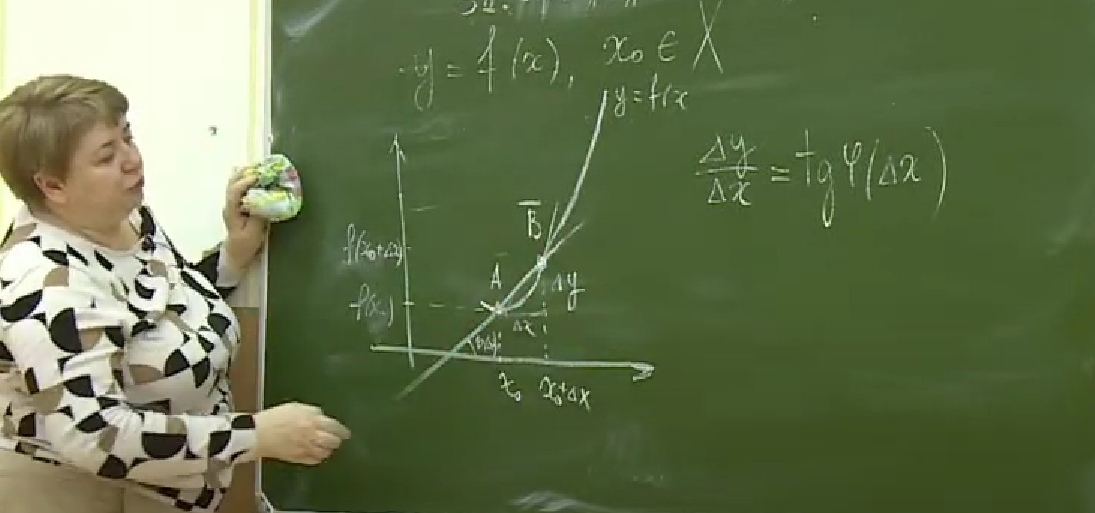 y = f(x), x₀ ∈ X
y = f(x
Δy/Δx = tg φ(Δx)
B
f(x₀+Δx)
A
Δy
f(x₀)
Δx
x₀ x₀+Δx